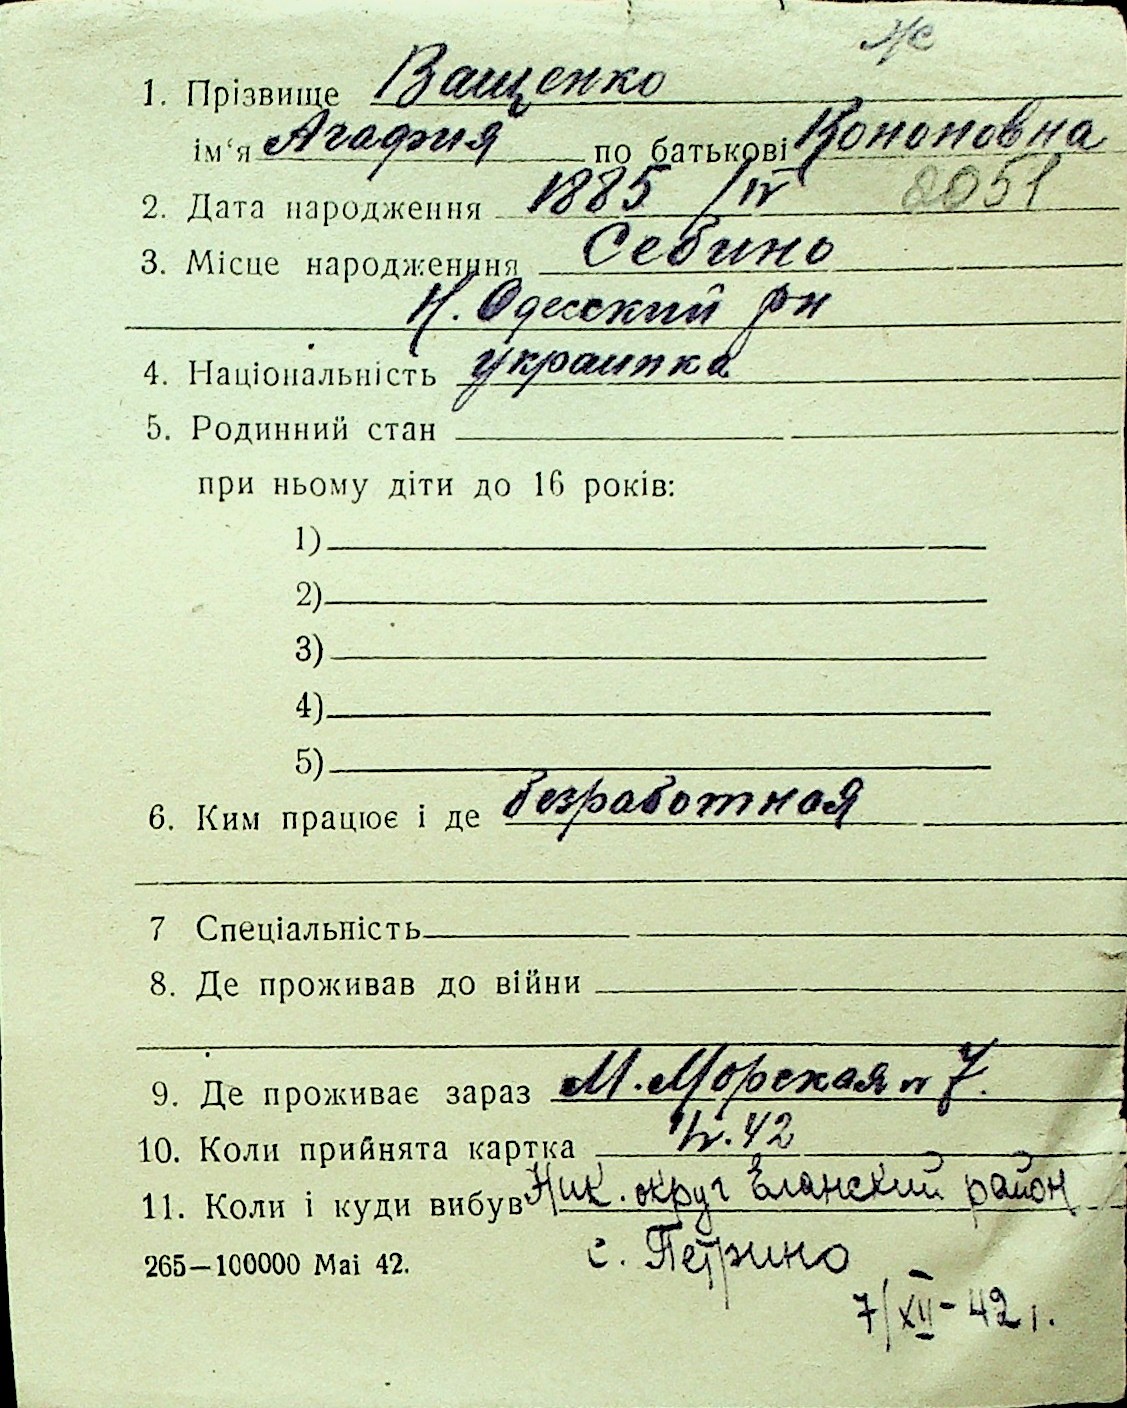 1. Прізвище Ващенко
ім'я Агафия по батькові Кононовна
2. Дата народження 1885 /IV 2051
3. Місце народженння Себино
Н. Одесский рн
4. Національність украинка
5. Родинний стан
при ньому діти до 16 років:
1)
2)
3)
4)
5)
6. Ким працює і де безработная
7 Спеціальність
8. Де проживав до війни
9. Де проживає зараз М. Морская n 7.
10. Коли прийнята картка 42
11. Коли і куди вибув Ник. округ Еланский район
265—100000 Mai 42. с. Петрино
7/XII-42 г.